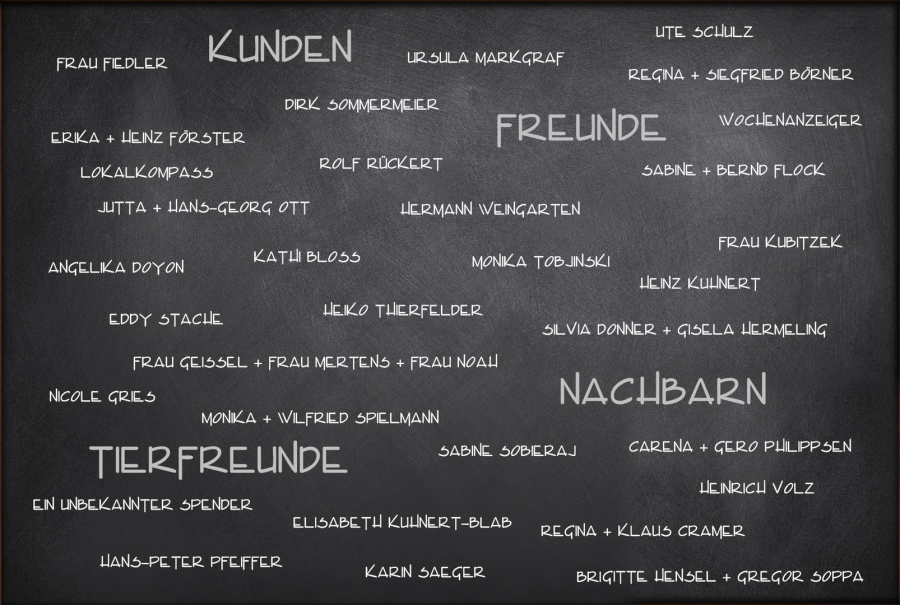 UTE SCHULZ
KUNDEN
URSULA MARKGRAF
FRAU FIEDLER
REGINA + SIEGFRIED BÖRNER
DIRK SOMMERMEIER
FREUNDE
WOCHENANZEIGER
ERIKA + HEINZ FÖRSTER
ROLF RÜCKERT
LOKALKOMPASS
SABINE + BERND FLOCK
JUTTA + HANS-GEORG OTT
HERMANN WEINGARTEN
FRAU KUBITZEK
KATHI BLOSS
MONIKA TOBJINSKI
ANGELIKA DOYON
HEINZ KUHNERT
HEIKO THIERFELDER
EDDY STACHE
SILVIA DONNER + GISELA HERMELING
FRAU GEISSEL + FRAU MERTENS + FRAU NOAH
NACHBARN
NICOLE GRIES
MONIKA + WILFRIED SPIELMANN
CARENA + GERO PHILIPPSEN
SABINE SOBIERAJ
TIERFREUNDE
HEINRICH VOLZ
EIN UNBEKANNTER SPENDER
ELISABETH KUHNERT-BLAB
REGINA + KLAUS CRAMER
HANS-PETER PFEIFFER
KARIN SAEGER
BRIGITTE HENSEL + GREGOR SOPPA